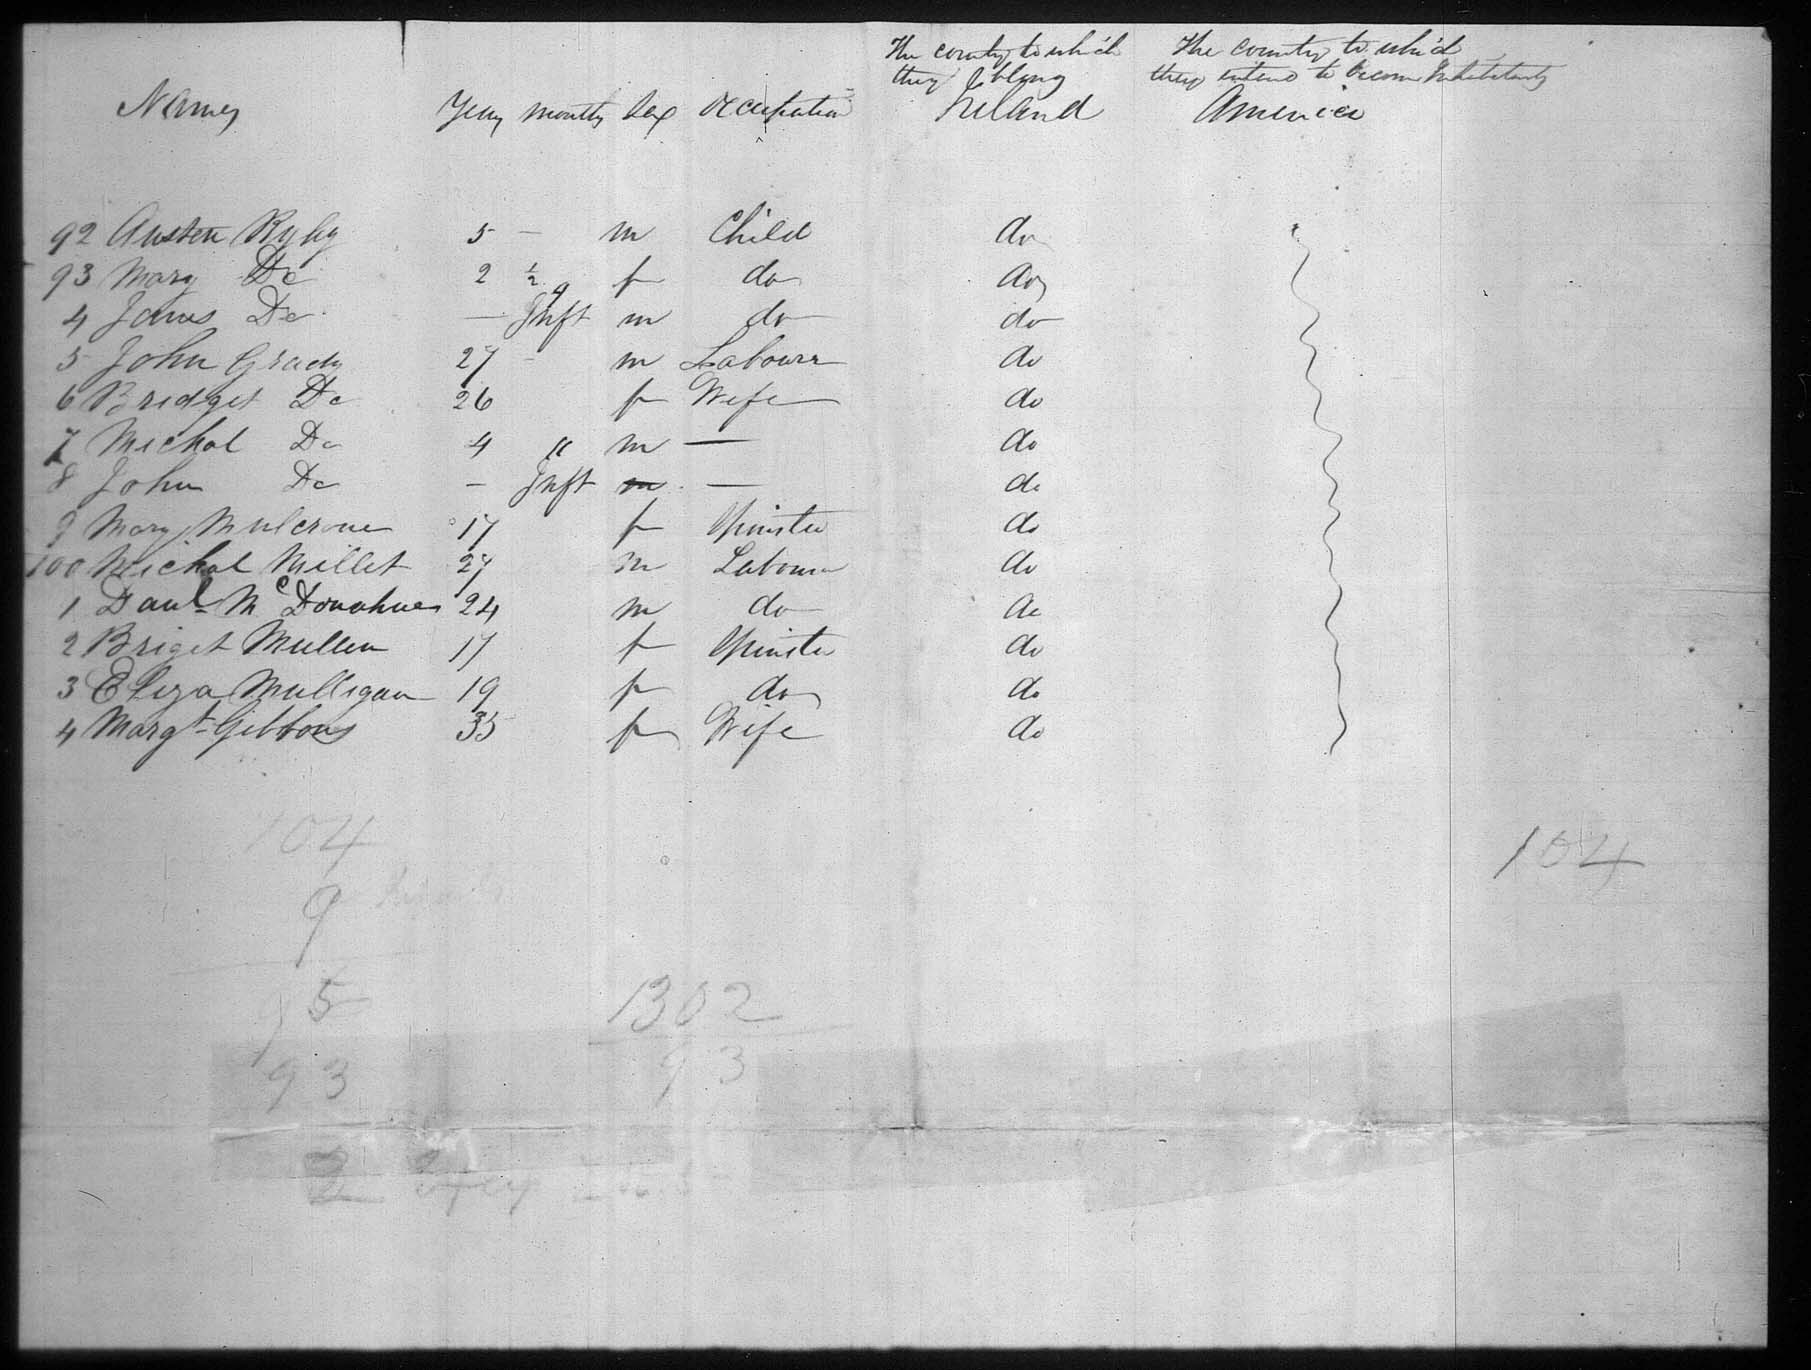 The country to which they blong
The country to which they intend to become Inhabitants
Names Years months Sex Occupation Ireland America
92 Austen Ruby 5 — m Child do
93 Mary Do 2 ½ f do do
4 James Do — Inft 9 m do do
5 John Grady 27 - m Labourer do
6 Bridget Do 26 f Wife do
7 Michal Do 4 " m — do
8 John Do — Inft m — do
9 Mary Mulcrone 17 f Spinster do
100 Michal Millet 27 m Labourer do
1 Danl McDonahue 24 m do do
2 Briget Mullen 17 f Spinster do
3 Eliza Mulligan 19 f do do
4 Margt Gibbons 35 f Wife do
104 104
9
95 1302
93 93
2